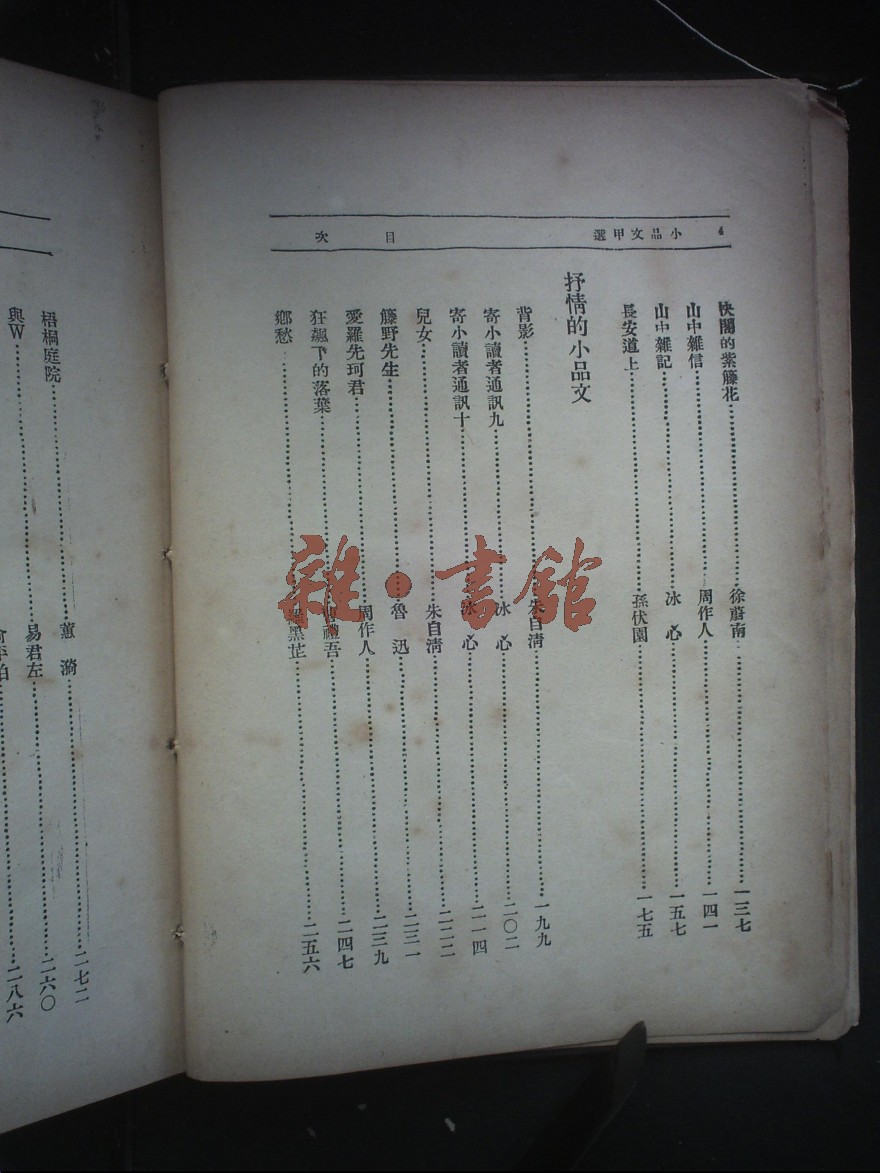 4 小品文甲選 目次
快閣的紫籐花 徐蔚南 一三七
山中雜信 周作人 一四一
山中雜記 冰心 一五七
長安道上 孫伏園 一七五
抒情的小品文
背影 朱自清 一九九
寄小讀者通訊九 冰心 二〇二
寄小讀者通訊十 冰心 二一四
兒女 朱自清 二二二
籐野先生 魯迅 二三一
愛羅先珂君 周作人 二三九
狂飆下的落葉 禮吾 二四七
鄉愁 黑芷 二五六
雜·書館
梧桐庭院 蕙漪 二七二
與W 易君左 二六〇
二八六